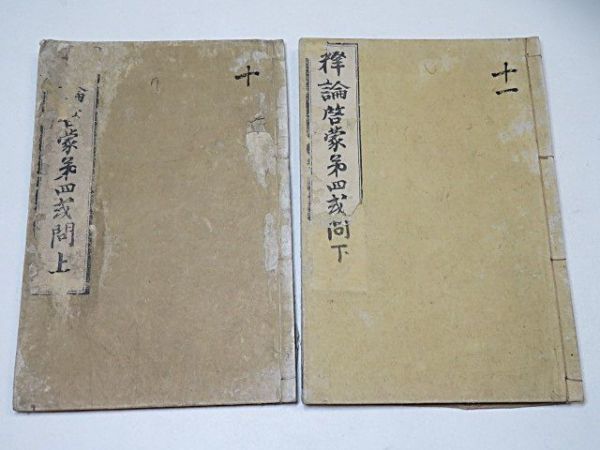 十
論啓蒙第四或問上
十一
釋論啓蒙第四或問下